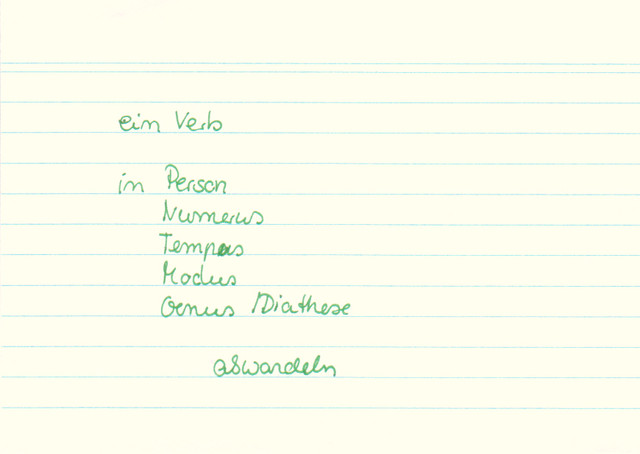 ein Verb
in Person
Numerus
Tempus
Modus
Genus /Diathese
abwandeln